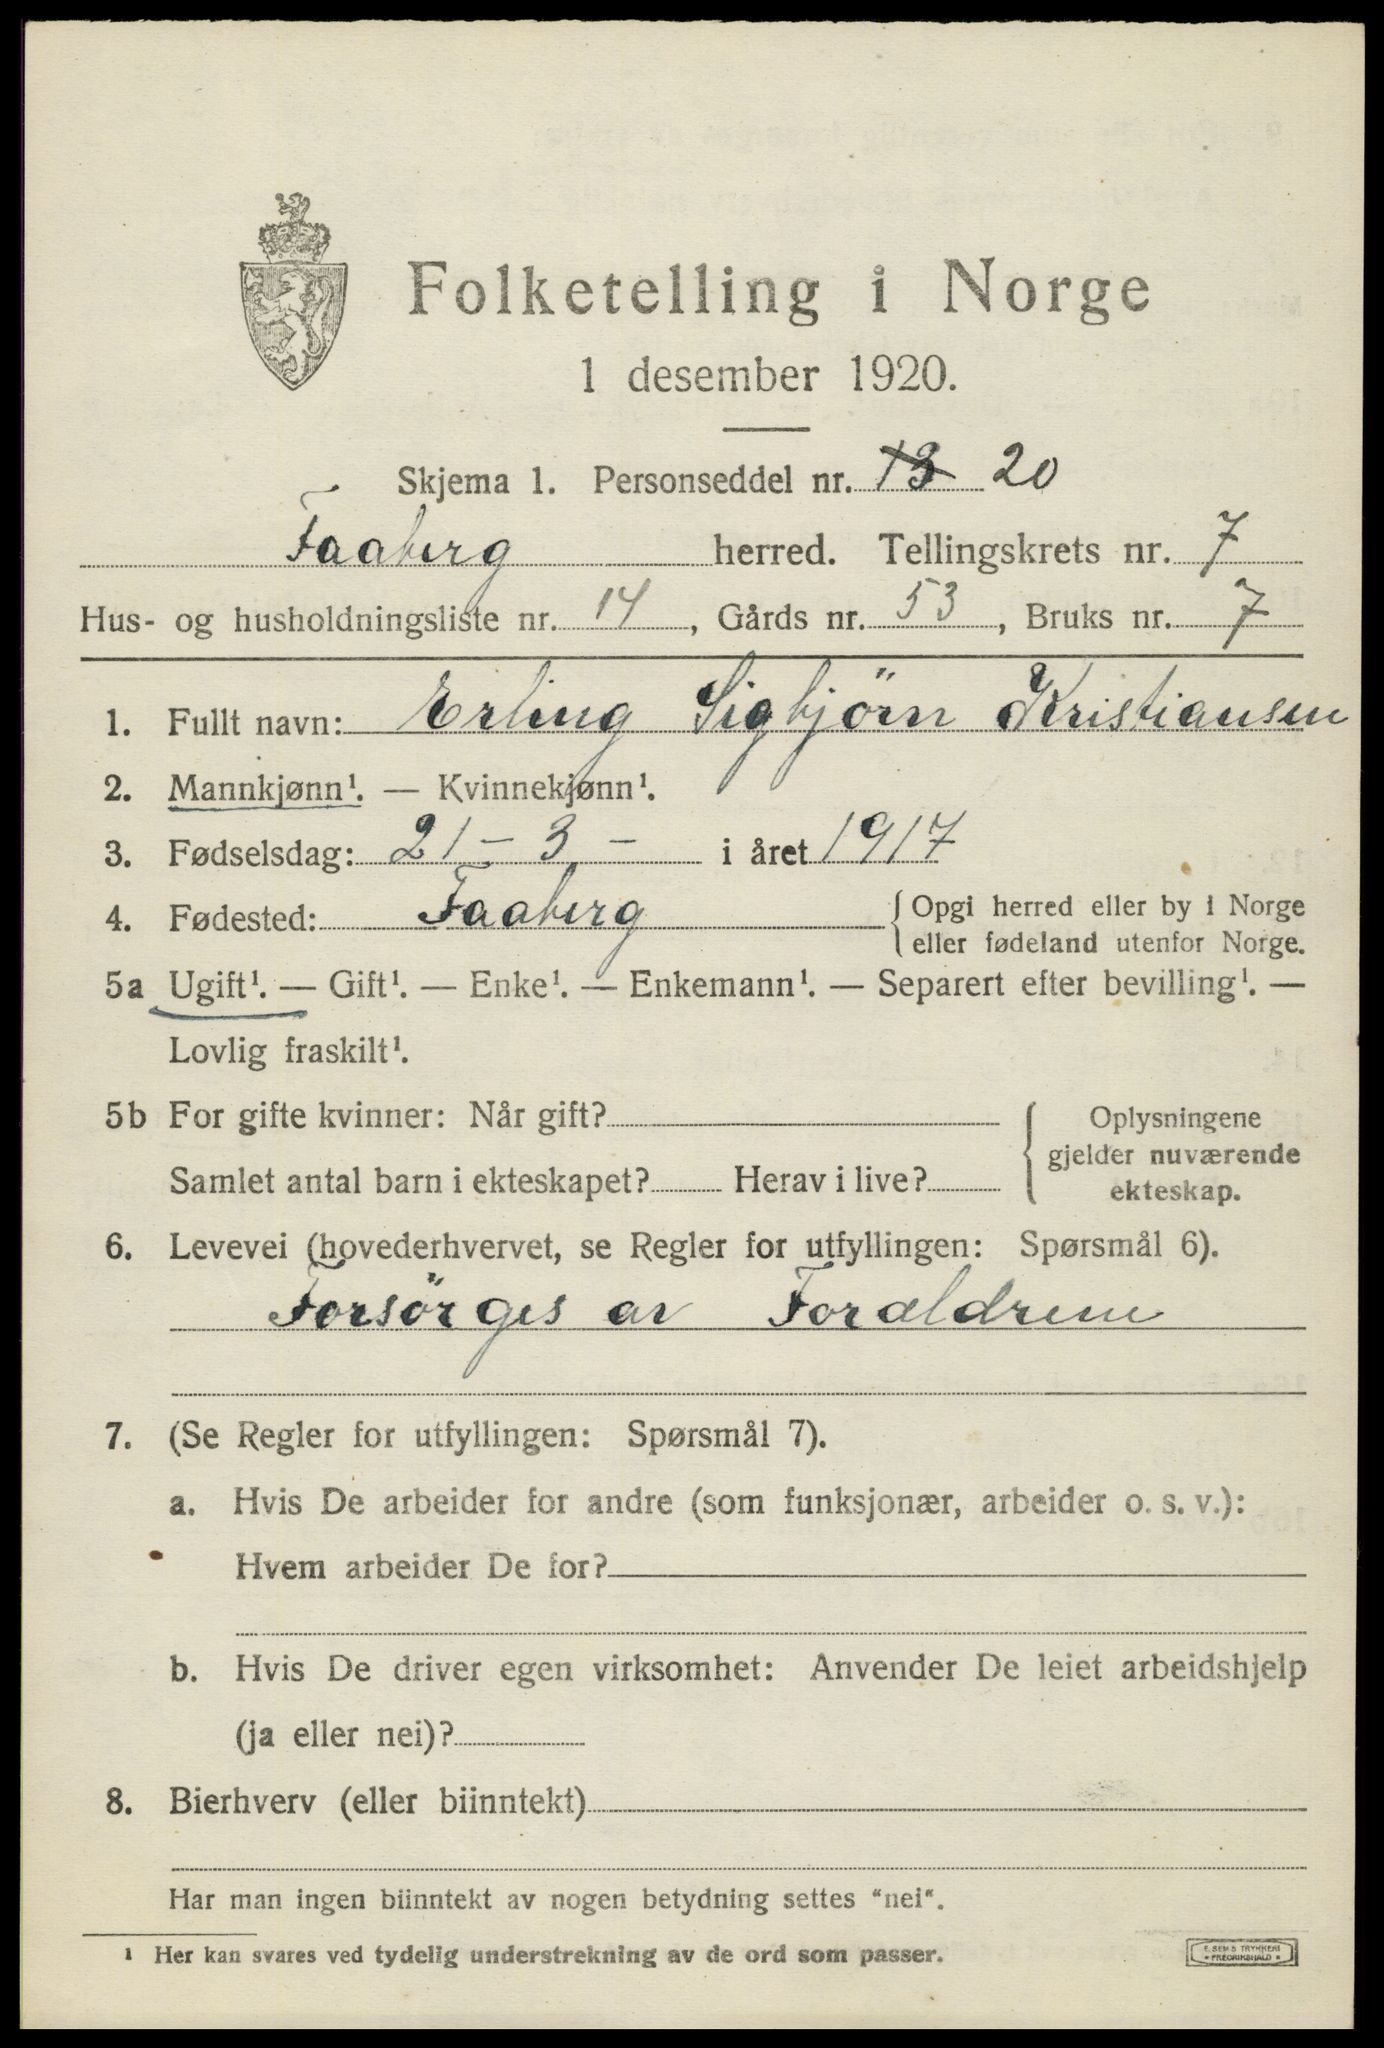 Folketelling i Norge
1 desember 1920.
Skjema 1. Personseddel nr. 13 20
Faaberg herred. Tellingskrets nr. 7
Hus- og husholdningsliste nr. 14, Gårds nr. 53, Bruks nr. 7
1. Fullt navn: Erling Sigbjörn Kristiansen
2. Mannkjønn¹. — Kvinnekjønn¹.
3. Fødselsdag: 21 - 3 - i året 1917
4. Fødested: Faaberg { Opgi herred eller by i Norge
eller fødeland utenfor Norge.
5a Ugift¹. — Gift¹. — Enke¹. — Enkemann¹. — Separert efter bevilling¹. —
Lovlig fraskilt¹.
5b For gifte kvinner: Når gift?
Samlet antal barn i ekteskapet? Herav i live?
{ Oplysningene
gjelder nuværende
ekteskap.
6. Levevei (hovederhvervet, se Regler for utfyllingen: Spørsmål 6).
Forsörges av Foraldrene
7. (Se Regler for utfyllingen: Spørsmål 7).
a. Hvis De arbeider for andre (som funksjonær, arbeider o. s. v.):
Hvem arbeider De for?
b. Hvis De driver egen virksomhet: Anvender De leiet arbeidshjelp
(ja eller nei)?
8. Bierhverv (eller biinntekt)
Har man ingen biinntekt av nogen betydning settes "nei".
¹ Her kan svares ved tydelig understrekning av de ord som passer.
E. SEM'S TRYKKERI
* FREDRIKSHALD *